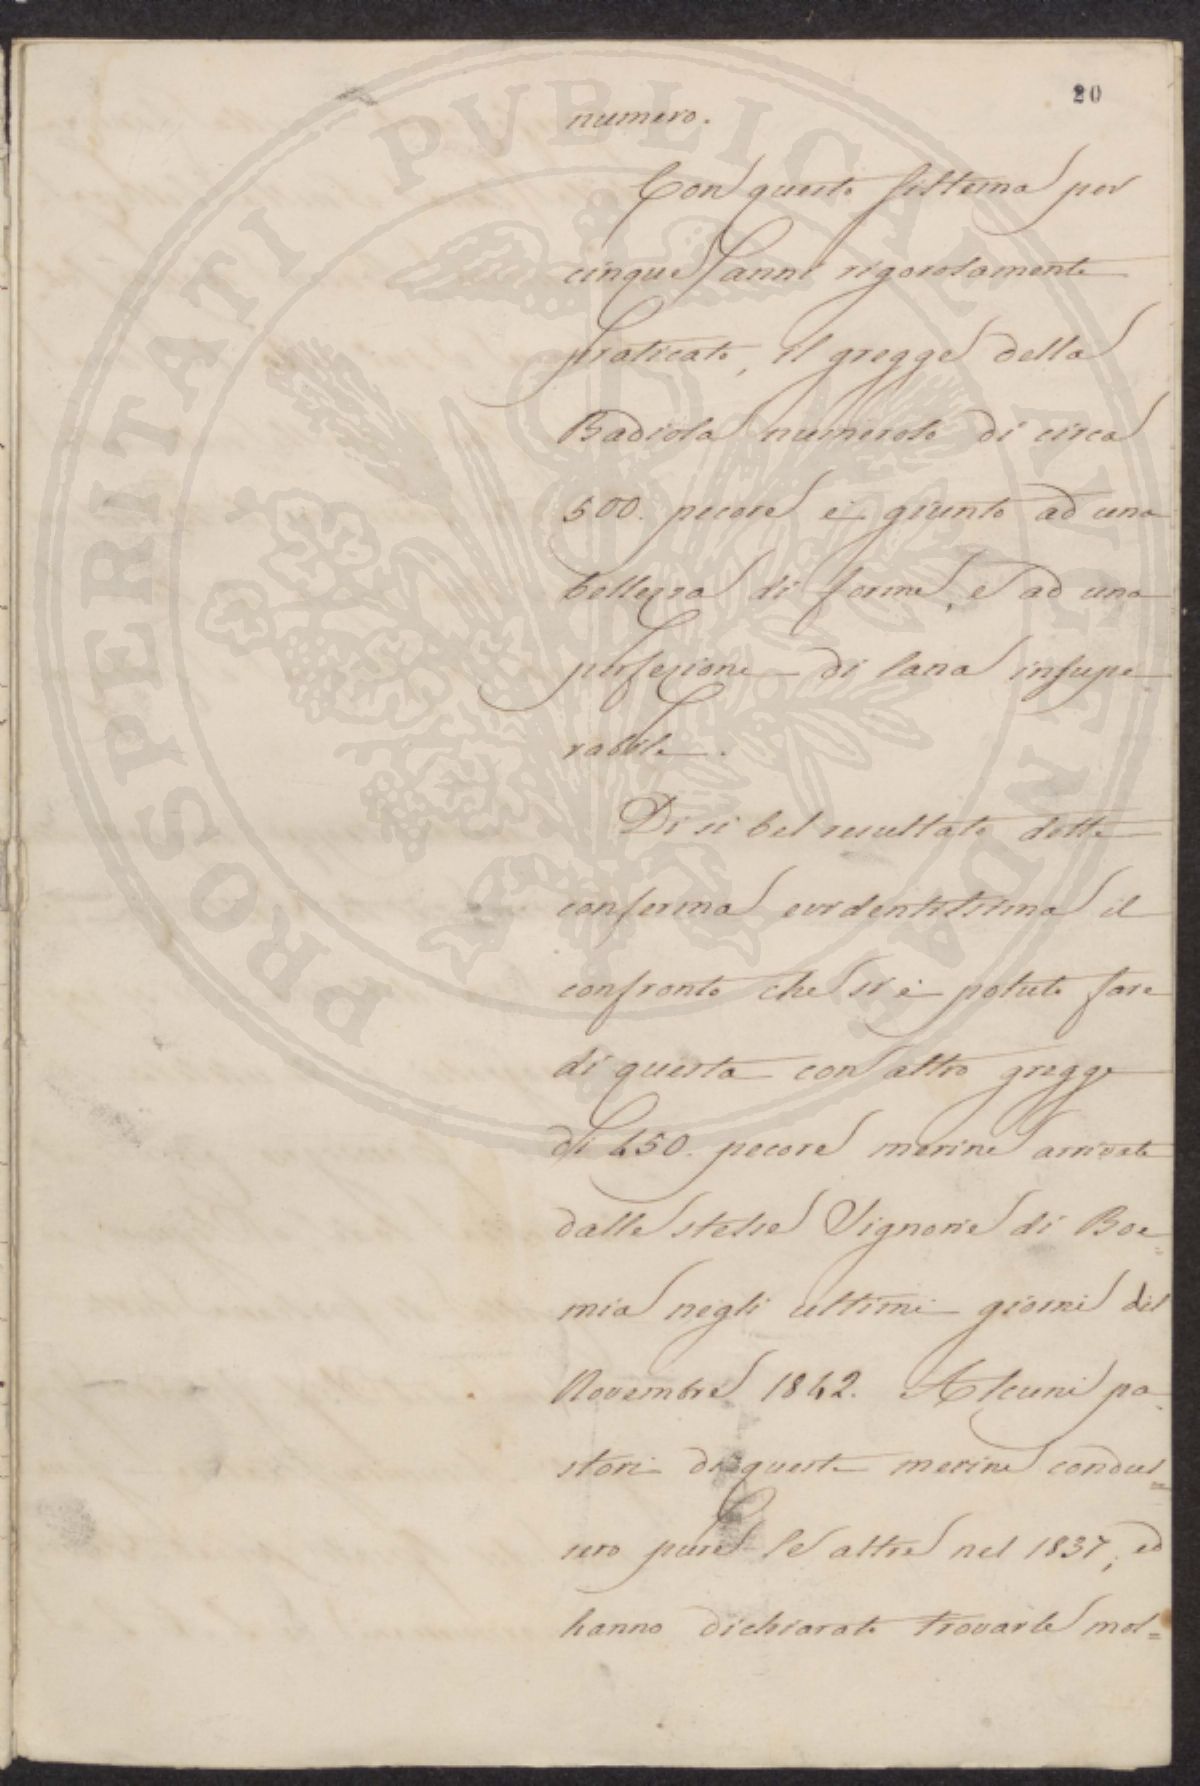 20
numero.
Con questo sistema per
cinque anni rigorosamente
praticato, il gregge della
Badiola numeroso di circa
500. pecore è giunto ad una
bellezza di forme, e ad una
perfezione di lana insupe
rabile.
Di sì bel resultato dette
conferma evidentissima il
confronto che si è potuto fare
di questa con altro gregge
di 450. pecore merine arrivate
dalle stesse Signorie di Boe=
mia negli ultimi giorni del
Novembre 1842. Alcuni pa=
stori di queste merine condus=
sero pure le altre nel 1837; ed
hanno dichiarato trovarle mol=
PROSPERITATI PVBLICAE AVGENDAE